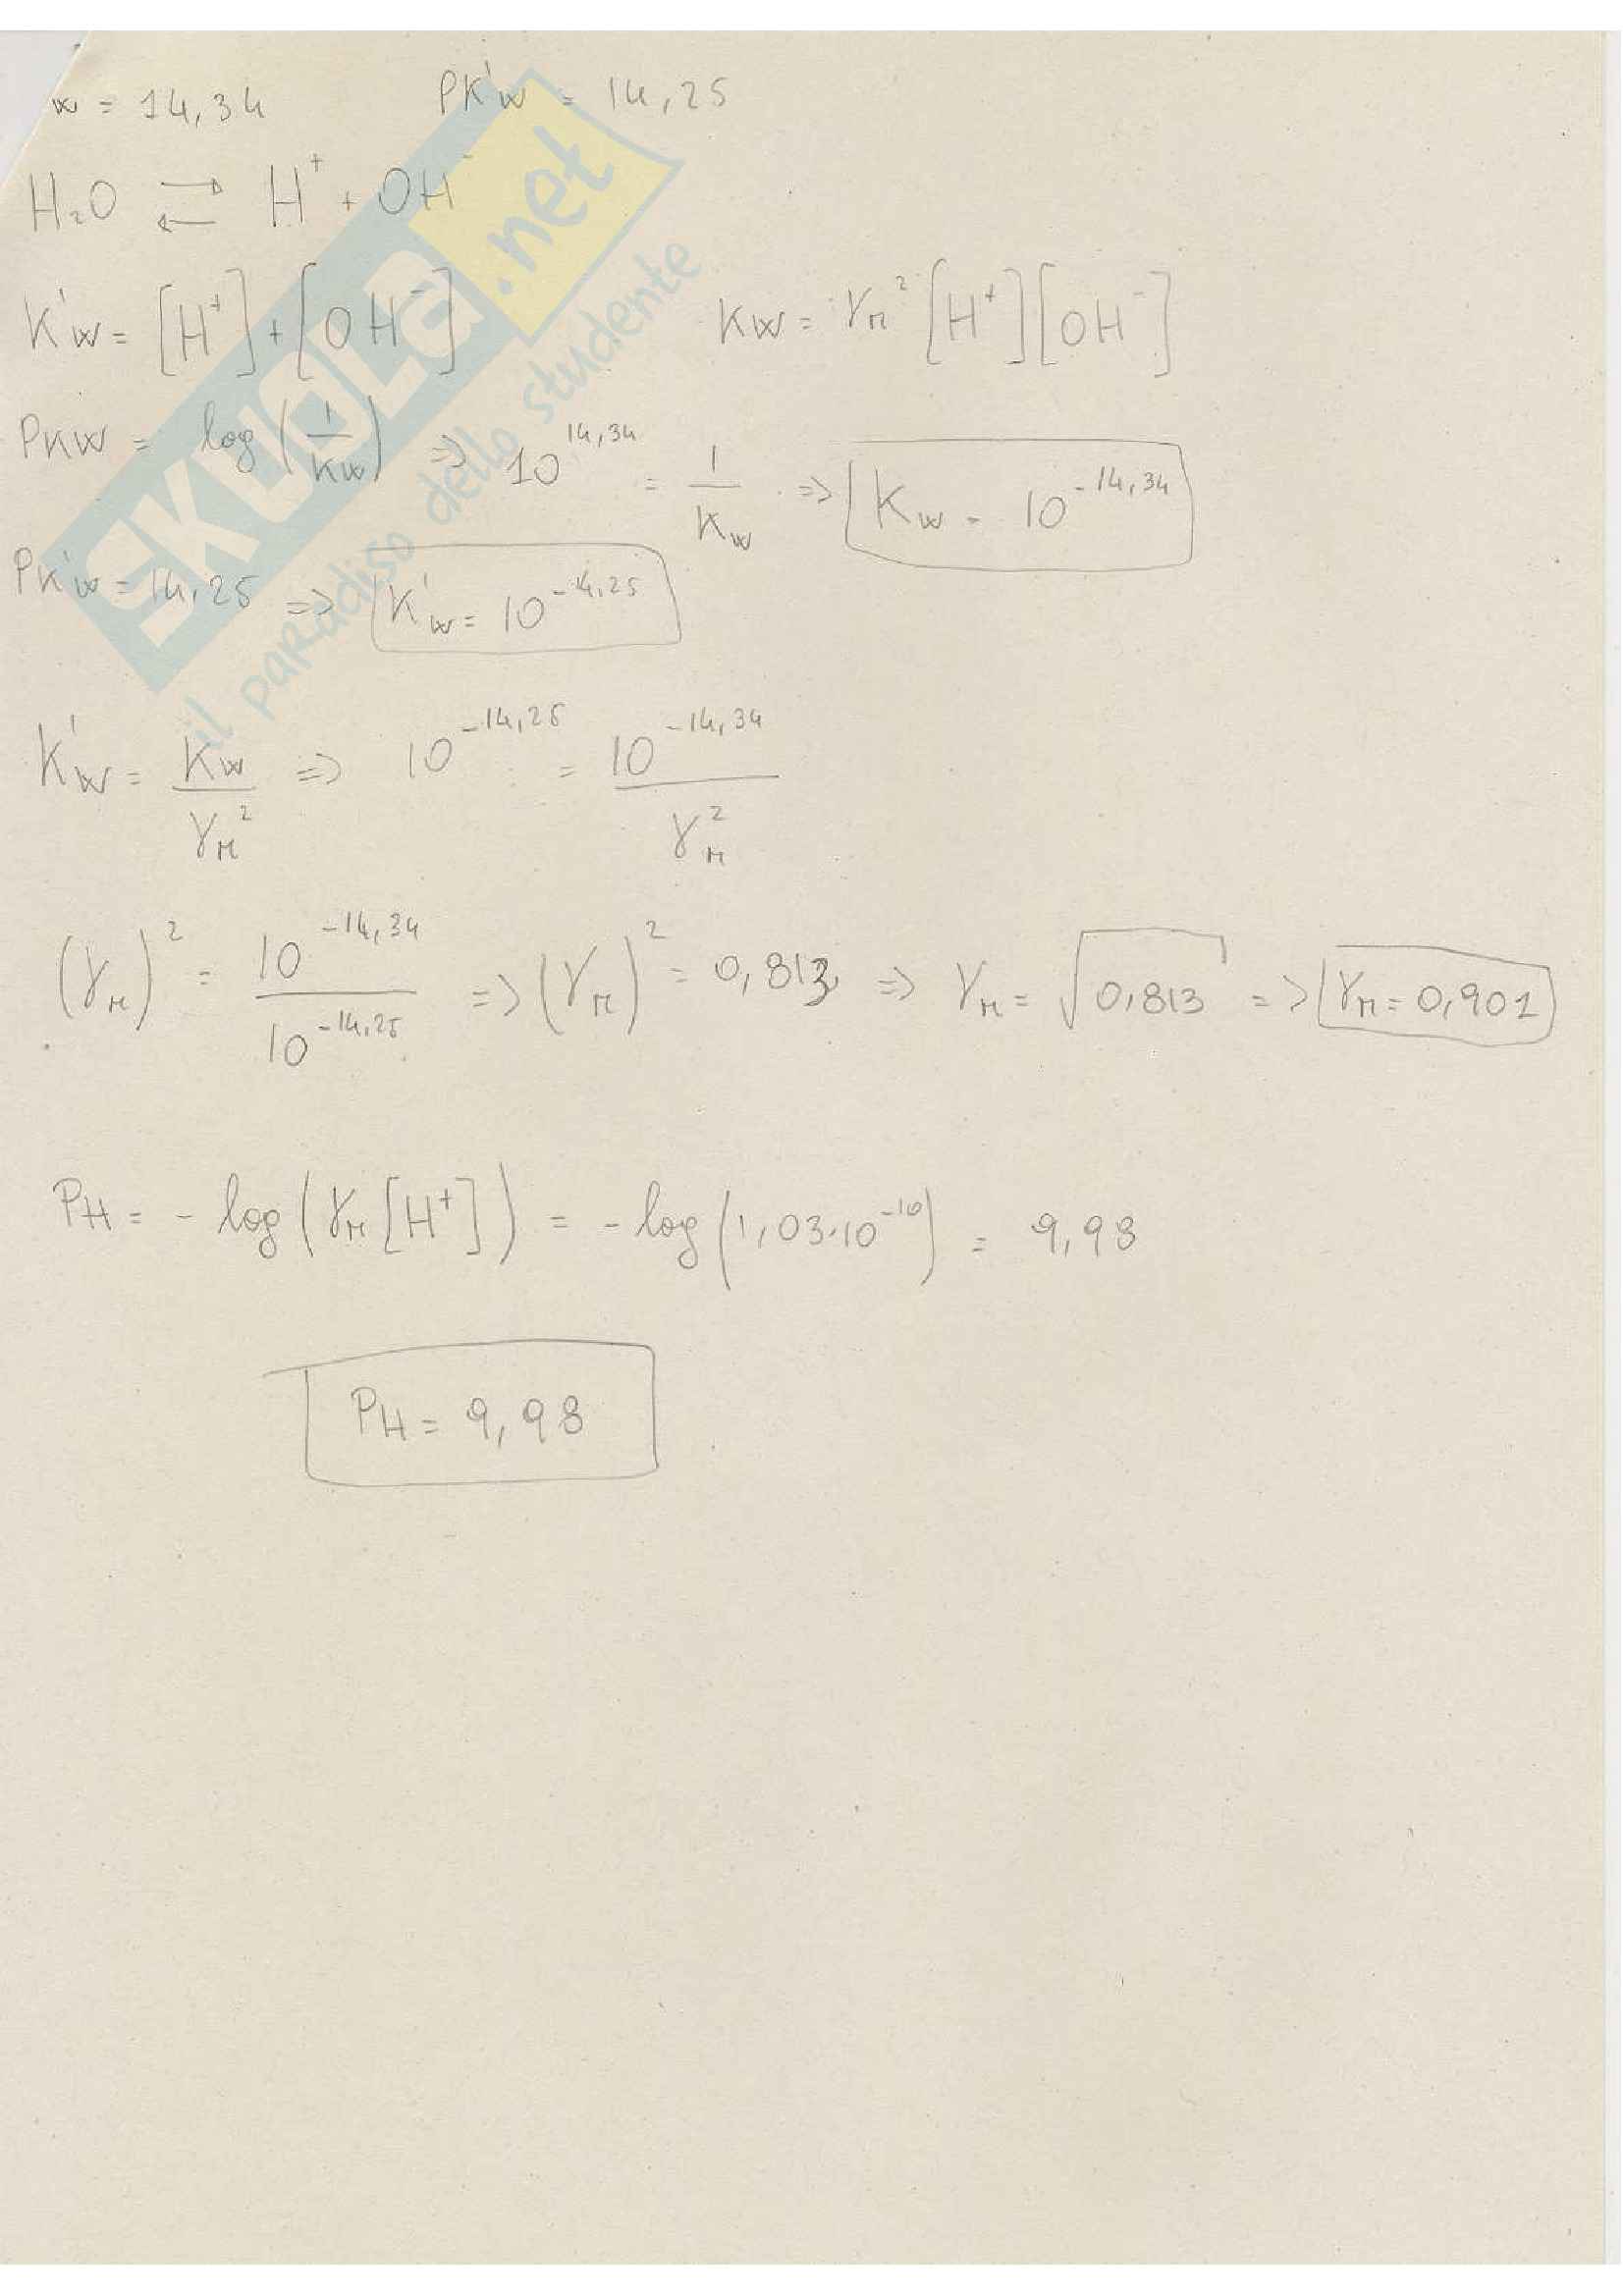 w = 14,34 PK'w = 14,25
H₂O ⇄ H⁺ + OH⁻
K'w = [H⁺] + [OH⁻] Kw = γ± ² [H⁺] [OH⁻]
PKW = log (1/Kw) => 10^14,34 = 1/Kw => Kw = 10^-14,34
PK'w = 14,25 => K'w = 10^-14,25
K'w = Kw/γ±² => 10^-14,25 = 10^-14,34/γ±²
(γ±)² = 10^-14,34/10^-14,25 => (γ±)² = 0,813 => γ± = √0,813 => γ± = 0,901
PH = - log (γ± [H⁺]) = - log (1,03·10^-10) = 9,98
PH = 9,98
SKUOLA.net
il paradiso dello studente